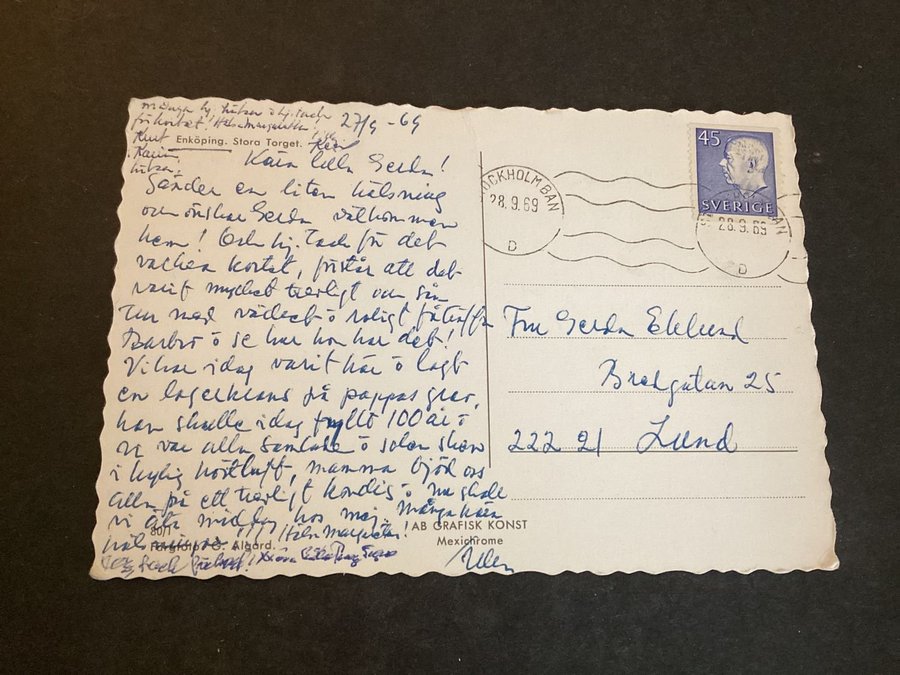 m Dagn hj. kramar o hj. tack
för kortet! Hels. Margareta!
27/9 - 69
Kurt
Enköping. Stora Torget.
Karin
Kära lilla Gerda!
Sänder en liten hälsning
och önskar Gerda välkommen
hem! Och hj. Tack för det
vackra kortet, förstår att det
varit mycket trevligt och sån
tur med vädret o roligt få träffa
Barbro o se hur hon har det!
Vi har idag varit här o lagt
en lagerkrans på pappas grav,
han skulle idag fyllt 100 år o
vi var alla samlade o solen sken
i kylig höstluft, mamma bjöd oss
alla på ett trevligt kondis o nu skall
vi äta middag hos mej. Många kära
!!! Hels Margareta!
Förgfoto G. Algård.
Tack
STOCKHOLM BAN
28.9.69
D
45
SVERIGE
28.9.69
D
Fru Gerda Eklund
Bredgatan 25
222 21 Lund
AB GRAFISK KONST
Mexichrome